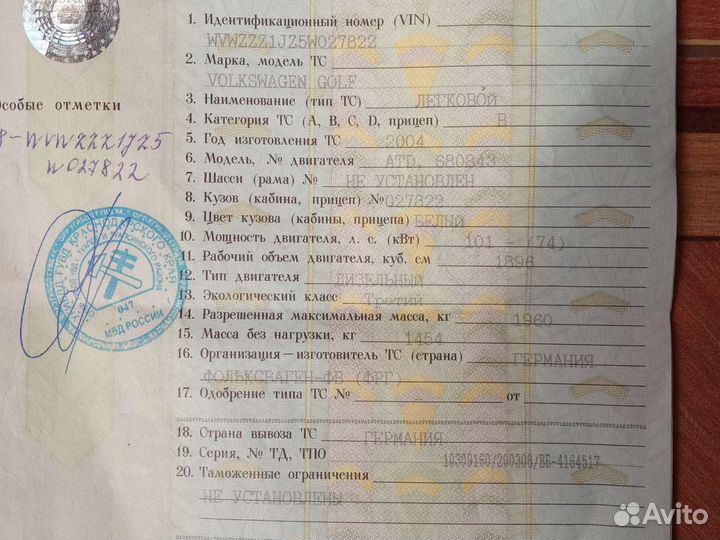 1. Идентификационный номер (VIN)
WVWZZZ1JZ5W027822
2. Марка, модель ТС
VOLKSWAGEN GOLF
3. Наименование (тип ТС) ЛЕГКОВОЙ
4. Категория ТС (А, В, С, D, прицеп) В
Особые отметки
5. Год изготовления ТС 2004
6. Модель, № двигателя ATD, 680843
WVWZZZ1JZ5
W027822
7. Шасси (рама) № НЕ УСТАНОВЛЕН
8. Кузов (кабина, прицеп) № 027822
9. Цвет кузова (кабины, прицепа) БЕЛЫЙ
10. Мощность двигателя, л. с. (кВт) 101 - (74)
11. Рабочий объем двигателя, куб. см 1896
12. Тип двигателя ДИЗЕЛЬНЫЙ
13. Экологический класс Третий
14. Разрешенная максимальная масса, кг 1960
15. Масса без нагрузки, кг 1454
16. Организация—изготовитель ТС (страна) ГЕРМАНИЯ
ФОЛЬКСВАГЕН-ФВ (ФРГ)
17. Одобрение типа ТС № от
КРАСНОДАРСКОГО КРАЯ
047
МВД РОССИИ
18. Страна вывоза ТС ГЕРМАНИЯ
19. Серия, № ТД, ТПО 10309160/290308/ВБ-4164517
20. Таможенные ограничения
НЕ УСТАНОВЛЕНЫ
Avito